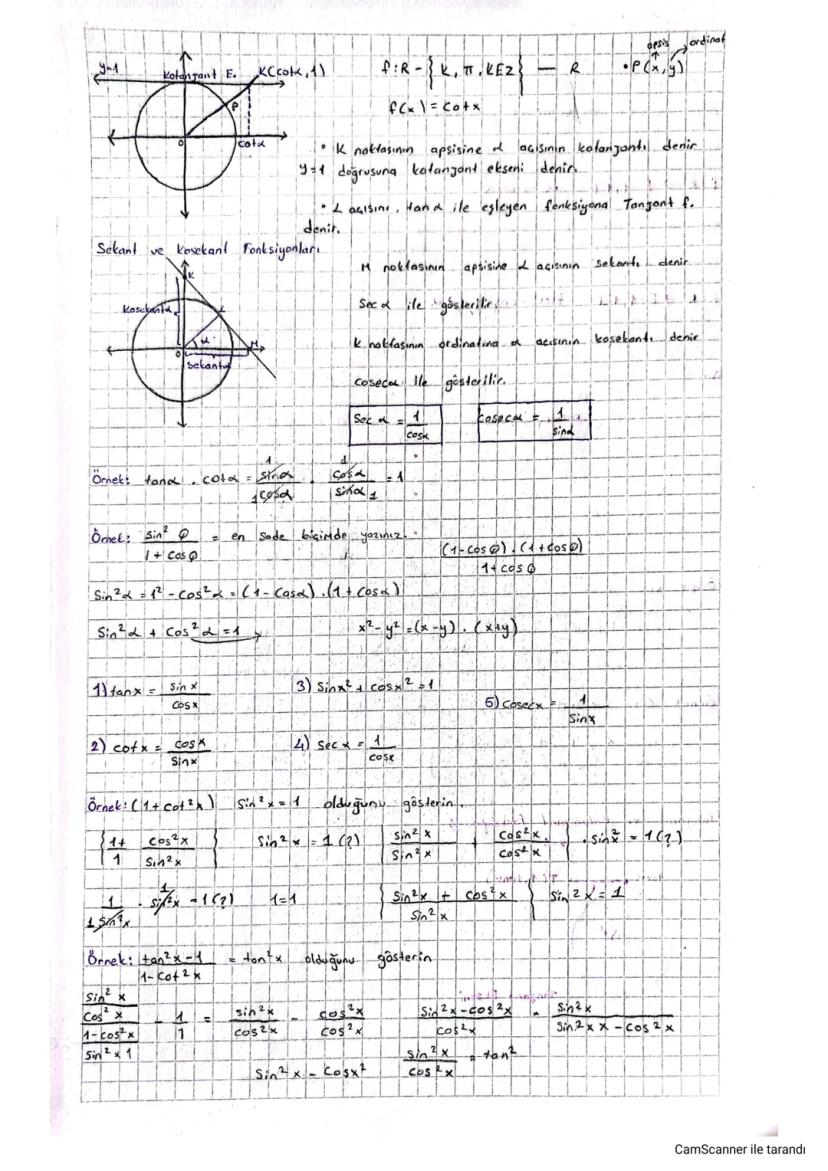 apsis ordinat
y=1 Kotanjant E. K(cotα, 1) f:R - {K, π. KEZ} — R • P(x,y)
P
f(x) = cotx
O cotα
• K noktasının apsisine α açısının kotanjantı denir
y=1 doğrusuna kotanjant ekseni denir.
• α açısını, tanα ile eşleyen fonksiyona Tanjant f.
denir.
Sekant ve Kosekant Fonksiyonları
K
M noktasının apsisine α açısının sekantı denir
Kosekantα L
Sec α ile gösterilir.
α
O M
K noktasının ordinatına α açısının kosekantı denir
Sekantα
cosecα ile gösterilir.
Sec α = 1/cosα cosecα = 1/sinα
Örnek: tanα . cotα = sinα/cosα . cosα/sinα = 1
Örnek: sin² θ / 1 + cos θ = en sade biçimde yazınız. (1-cosθ).(1+cosθ) / 1+cosθ
Sin²α = 1² - cos²α = (1 - Cosα) .(1 + cosα)
Sin²α + Cos²α = 1 x² - y² = (x-y) . (x+y)
1) tanx = sin x / cosx 3) Sinx² + cosx² = 1
5) cosecx = 1 / sinx
2) cotx = cosx / sinx 4) Sec x = 1 / cosx
Örnek: (1 + cot²x) Sin²x = 1 olduğunu gösterin.
{1+/1 cos²x/Sin²x} Sin²x = 1 (?) {sin²x/Sin²x + cos²x/cos²x} . sin²x = 1 (?)
1/1 sin²x . sin²x = 1 (?) 1=1 {Sin²x + cos²x / Sin²x} Sin²x = 1
Örnek: tan²x-1 / 1-cot²x = tan²x olduğunu gösterin
Sin²x/cos²x / 1-cos²x/Sin²x 1 - 1/1 = sin²x/cos²x - cos²x/cos²x Sin²x-cos²x/cos²x . Sin²x/Sin²xx-cos2x
Sin²x - Cosx² sin²x/cos²x = tan²
CamScanner ile tarandı